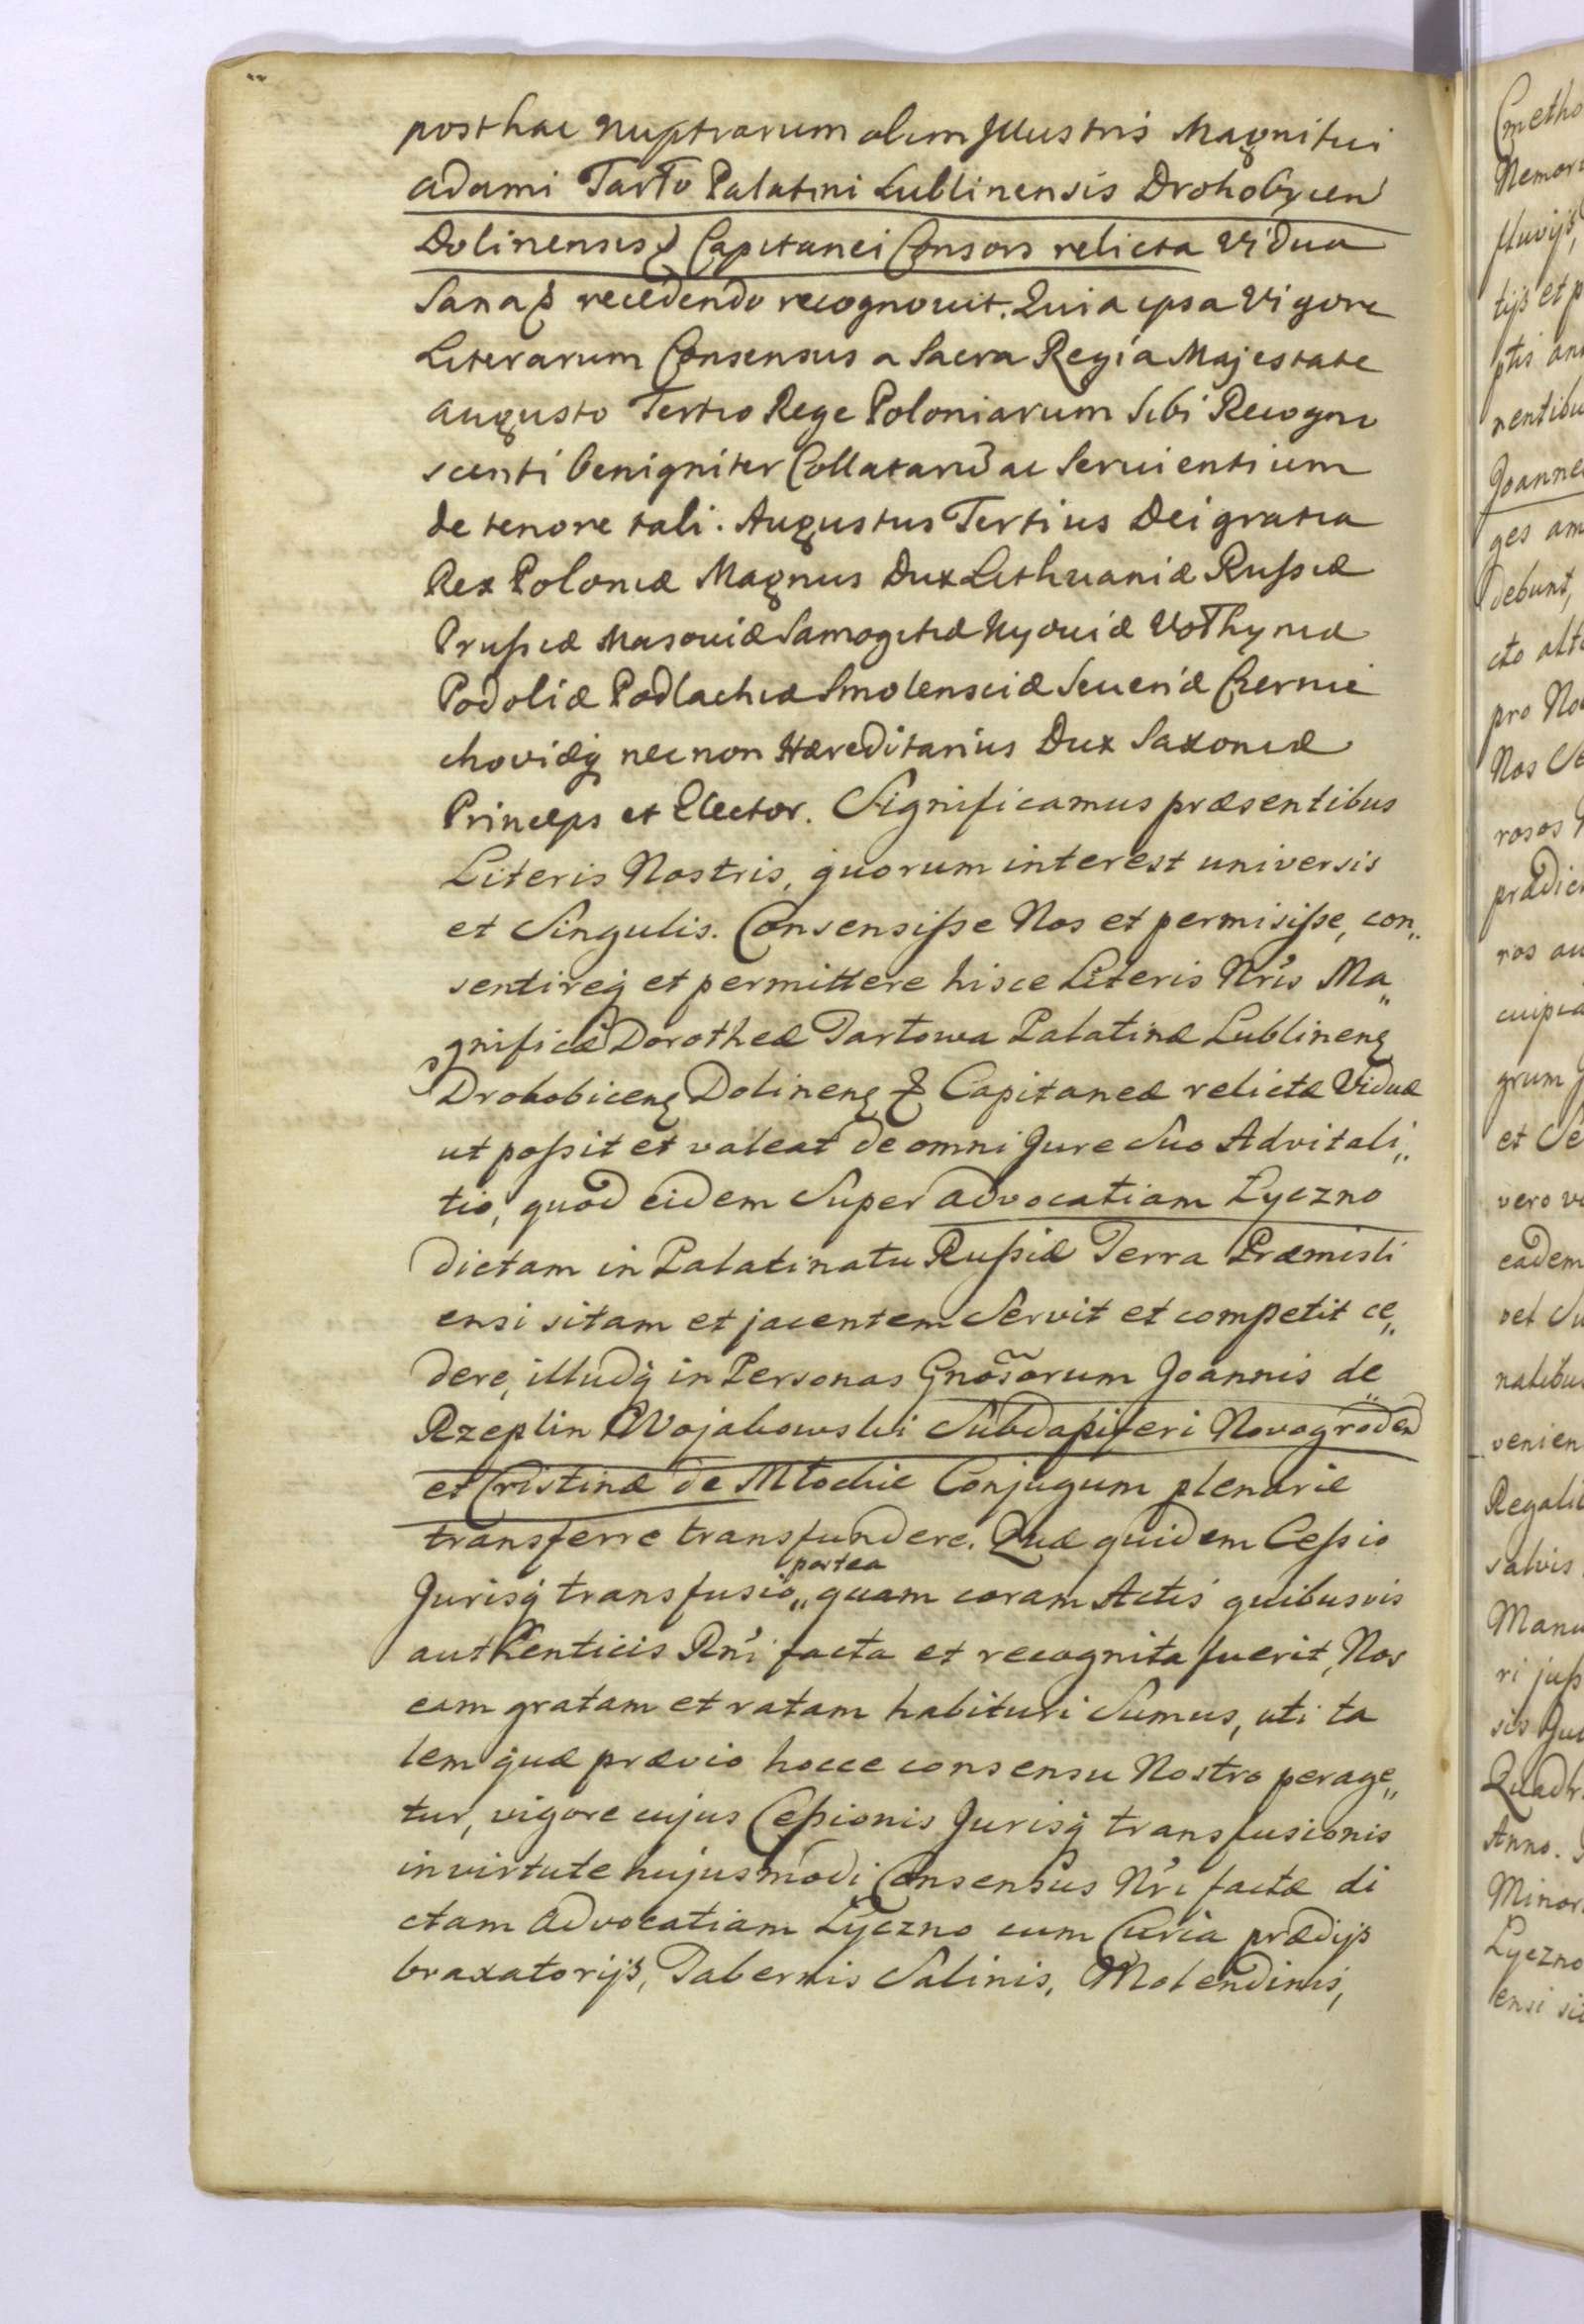 posthac Nuptiarum olim Jllustris Magnifici
Adami Tarło Palatini Lublinensis Drohobycen
Dolinensis & Capitanei Consors relicta Vidua
Sana & recedendo recognovit. Quia ipsa Vigore
Literarum Consensus a Sacra Regia Majestate
Augusto Tertio Rege Poloniarum Sibi Recogno
scenti benigniter Collatarū ac Servientium
de tenore tali. Augustus Tertius Dei gratia
Rex Poloniæ Magnus Dux Lithvaniæ Rußiæ
Prußiæ Masoviæ Samogitiæ Kyoviæ Volhyniæ
Podoliæ Podlachiæ Smolensciæ Severiæ Czernie
choviæq nec non Hæreditarius Dux Saxoniæ
Princeps et Elector. Significamus præsentibus
Literis Nostris, quorum interest universis
et Singulis. Consensiße Nos et permisiße, con„
sentireq et permittere hisce Literis Nris Ma„
gnificæ Dorotheæ Tartowa Palatinæ Lublinens
Drohobicens Dolinens & Capitaneæ relictæ Viduæ
ut poßit et valeat de omni Jure Suo Advitali„
tio, quod eidem Super Advocatiam Łyczno
dictam in Palatinatu Rußiæ Terra Præmisli
ensi sitam et jacentem Servit et competit ce„
dere, illudq in Personas Gnosorum Joannis de
Rzeplin Wojakowski Subdapiferi Novogroden
et Cristinæ de Młockie Conjugum plenarie
transferre transfundere. Quæ quidem Ceßio
Jurisq transfusio„ postea quam coram Actis quibusvis
authenticis Rni facta et recognita fuerit, Nos
eam gratam et ratam habituri Sumus, uti ta
lem quæ prævio hocce consensu Nostro perage„
tur, vigore cujus Ceßionis Jurisq transfusionis
in virtute hujusmodi Consensus Nri factæ di
ctam Advocatiam Łyczno cum Curia prædijs
braxatorijs, Tabernis Salinis, Molendinis,
Cmetho
Nemor
fluvijs,
tijs et p
ptis an
nentibu
Joannes
ges am
debunt,
cto alte
pro No
Nos Se
rosos
prædic
ros au
cuipia
grum
et Se
vero v
eadem
vel Su
natibus
venien
Regali
salvis
Manu
ri juß
sis
Quadr
Anno.
Minor
Łyczno
ensi si